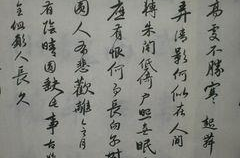 高處不勝寒 起舞
弄清影何似在人間
轉朱閣低倚戶照無眠
應有恨何事長向別時
圓人有悲歡離合月
有陰晴圓缺此事古難
全但願人長久